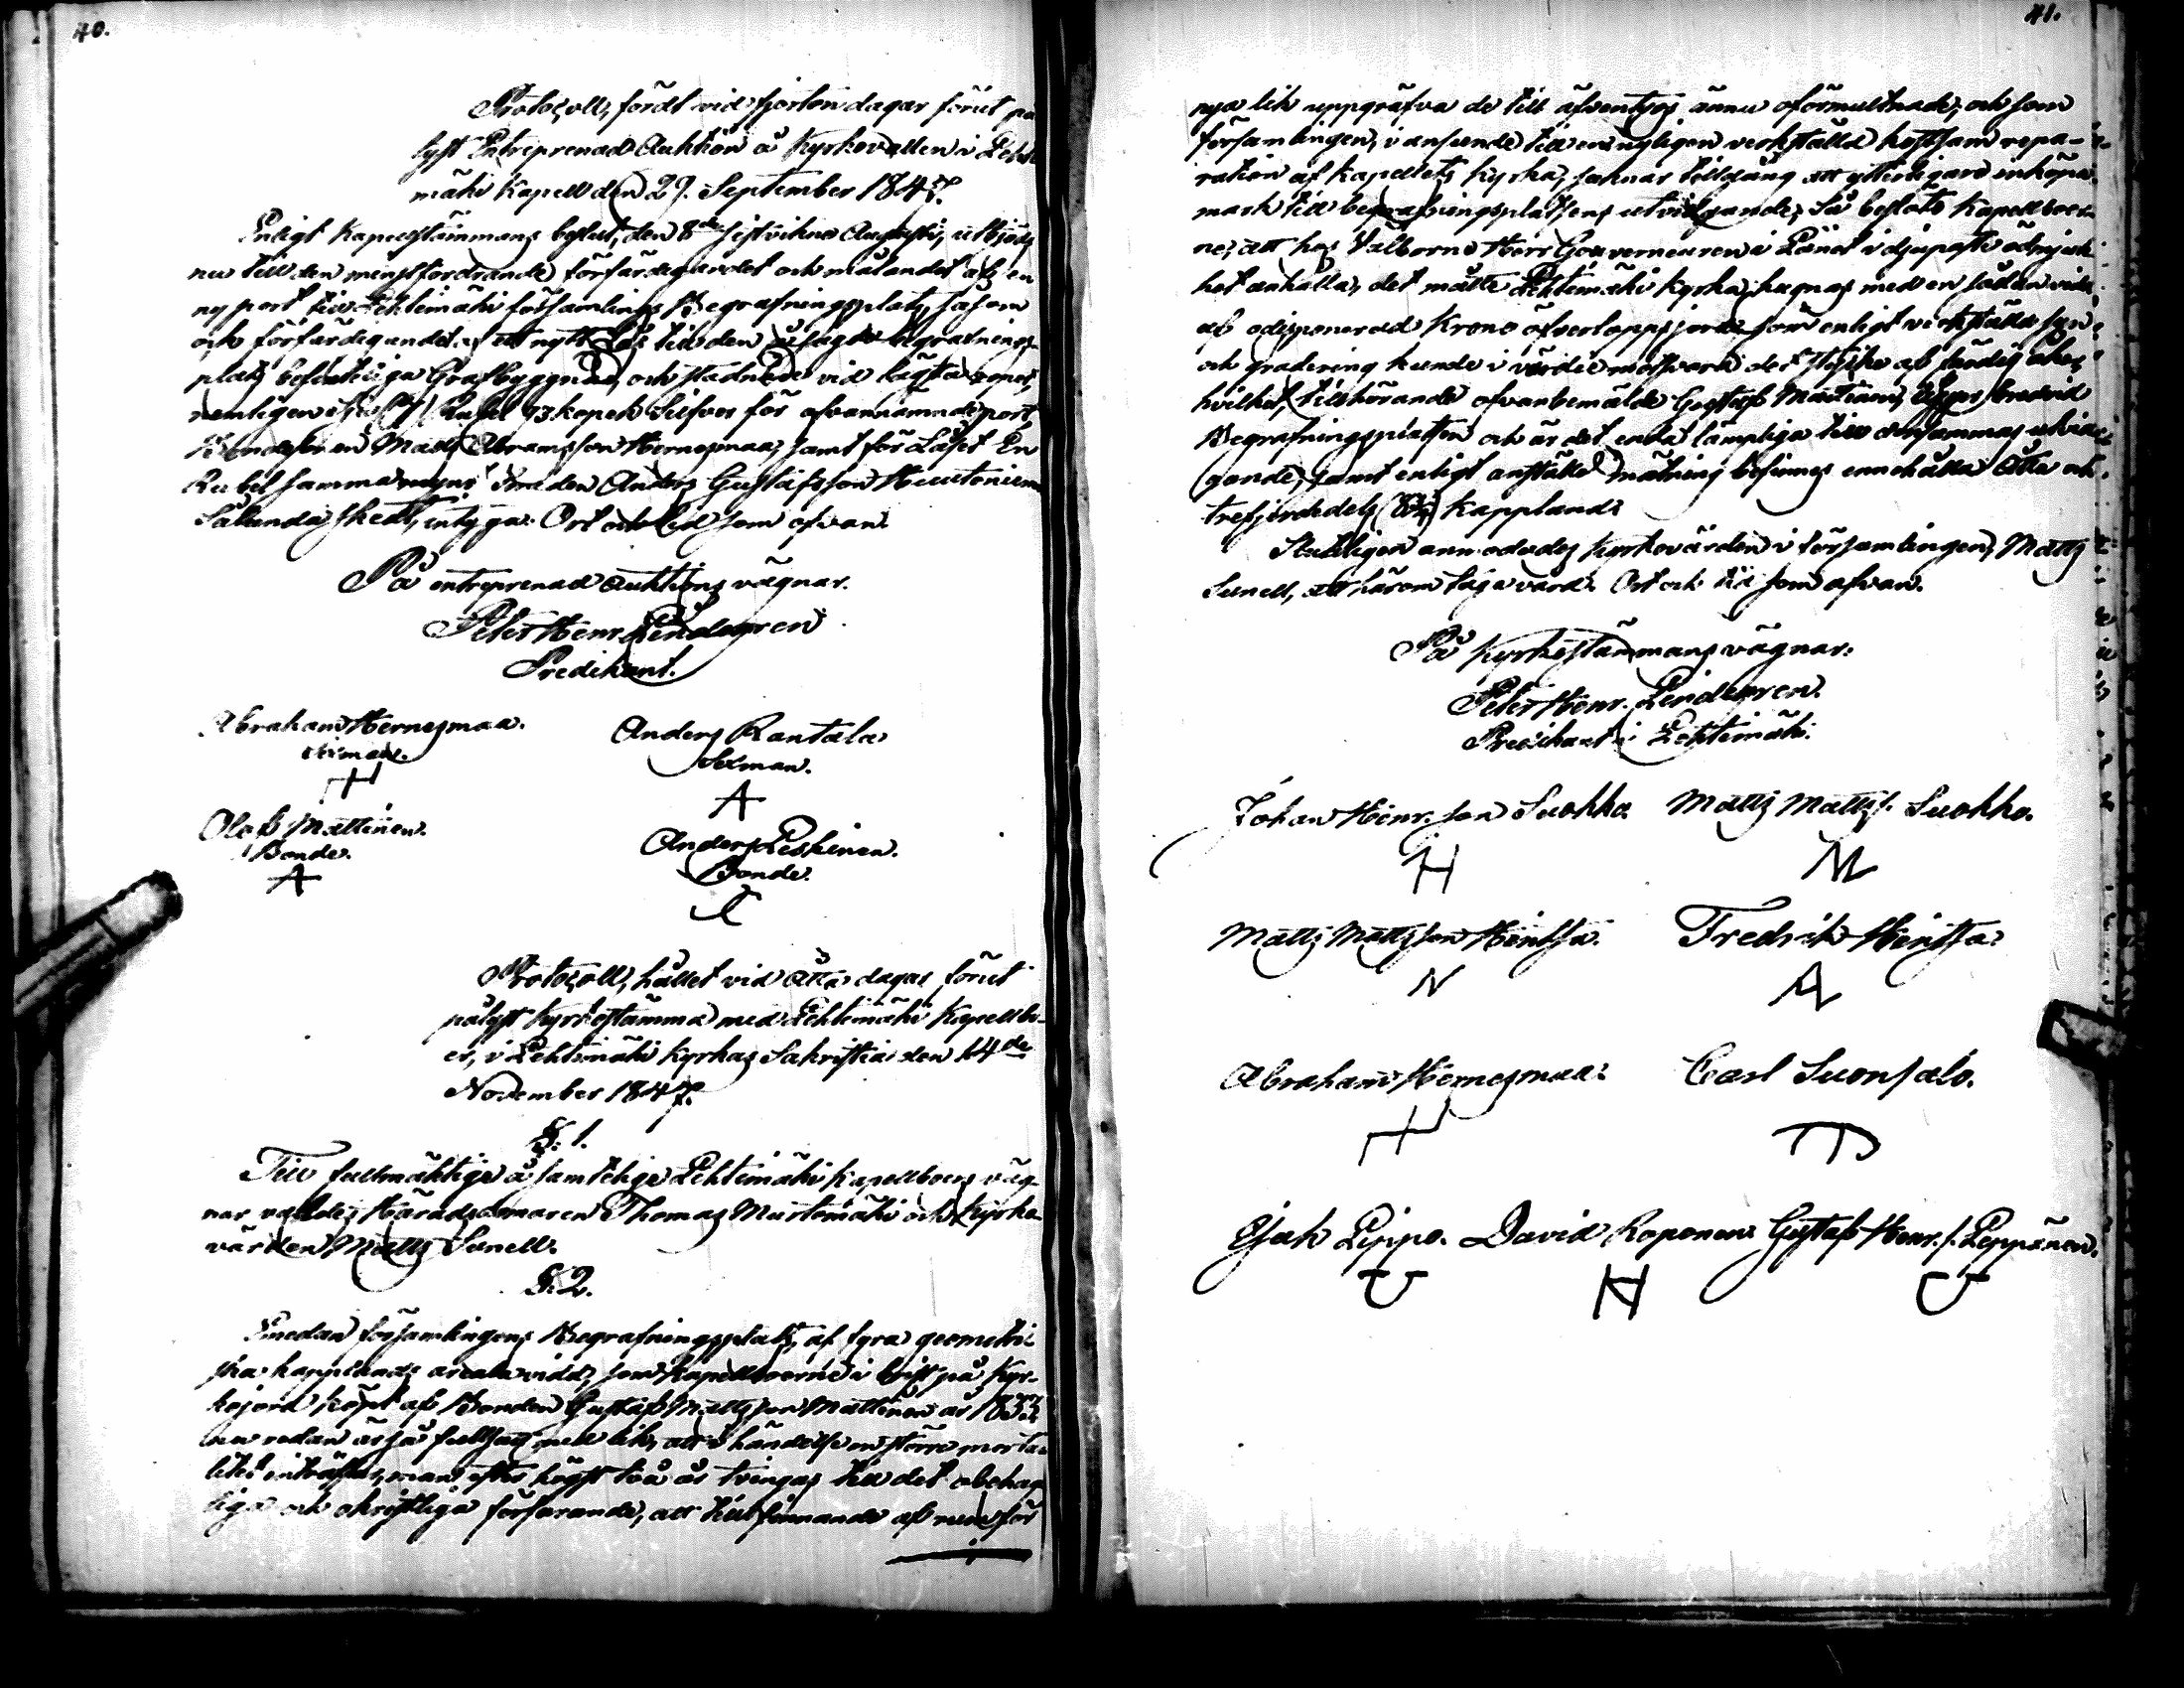 40.
Protocoll, fördt vid fjorton dagar förut på
lyst Entreprenad Auktion å Kyrkovallen i Lehti
mäki Kapell den 29. September 1847.
Enligt Kapellstämmans beslut, den 8de sistvikne Augusti, utbjöds
nu till den minstfordrande förfärdigandet och målandet af en
ny port till Lehtimäki församlings Begrafningsplats, såsom
och förfärdigandet af ett nytt Lås till den
plats befinteliga Grafbyggnad, och stadnade vid lägsta
nemligen Rubel 93 kopek Silfver för ofvannämnde port,
Bondesonen Matts Abramsson Hernesmaa, samt för Låset En
Rubel samma mynt Smeden Anders Gustafsson
Sålunda skedt, intyga. Ort och tid som ofvan.
På entreprenad Auktions vägnar.
Peter Henr. Lindegren
Predikant.
Abraham Hernesmaa. Anders Rantala
Sexman. Sexman.
Olof Mattinen. Anders Leskinen.
Bonde. Bonde.
Protocoll, hållet vid åtta dagar förut
pålyst Kyrkostämma med Lehtimäki Kapellbo-
er, i Lehtimäki Kyrkas Sakristia den 14de
November 1847.
§. 1.
Till fullmäktige å samtelige Lehtimäki Kapellboers väg-
nar valdes Häradsdomaren Thomas Murtomäki och Kyrko-
värden Matts Sunell.
§. 2.
Emedan församlingens Begrafningsplats, af fyra geometri-
ska kapplands areala vidd, som Kapellboerne i brist på Kyr-
kojord köpt af Bonden Gustaf Mattsson Mattinen år 1833,
nu redan är så fullsatt med lik, att i händelse en större morta-
litet inträffar, man efter högst två år tvingas till det obehag
liga och okristliga förfarande, att till för
41.
nya lik uppgräfva de till äfventyrs ännu oförmultnade, och som
församlingen, i anseende till en nyligen verkställd kostsam repa-
ration af Kapellets Kyrka, saknar tillgång att ytterligare inköpa
mark till begrafningsplatsens utvidgande, Så beslöto Kapellboer-
ne, att hos Välborne Herr Gouverneuren i Länet i djupaste ödmjuk
het anhålla, det måtte Lehtimäki Kyrka hugnas med en sådan vidd
af odisponerad Krono öfverloppsjord som enligt verkställd syn
och gradering kunde i värde motsvara det stycke af åker,
hvilket, tillhörande ofvanbemälde Gustaf Mattinen, bredvid
Begrafningsplatsen och är det enda lämpliga till densammas utvid
gande, samt enligt anställd mätning befinnes innehålla Åtta och
trefjerdedels (8¾) Kappland.
Slutligen anmodades Kyrkovärden i församlingen, Matts
Sunell, att härom taga vård. Ort och tid som ofvan.
På Kyrkostämmans vägnar.
Peter Henr. Lindegren.
Predikant i Lehtimäki.
Johan Henr. son Suokko. Matts Matts s. Suokko.
H M
Matts Mattsson Heintsa. Fredrik Heintsa.
N
Abraham Hernesmaa. Carl Suonsalo.
Isak Lippo. David Roponen. Gustaf Henr. s. Leppänen.